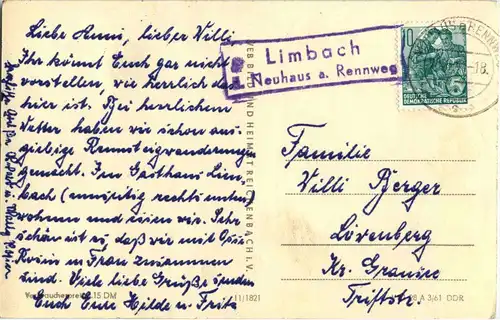 Liebe Anni, lieber Willi
Ihr könnt Euch gar nicht
vorstellen, wie herrlich das
hier ist. Bei herrlichem
Wetter haben wir schon aus-
giebige Rennsteigwanderung
gemacht. Im Gasthaus Lim-
bach (umseitig rechts unten)
wohnen und essen wir. Sehr
schön ist es, daß wir mit
u. Frau zusammen
sind. Viele liebe Grüße senden
Euch Eure Hilde u. Fritz
Limbach
Neuhaus a. Rennweg
10
5
DEUTSCHE
DEMOKRATISCHE REPUBLIK
-18.
VEB BILD UND HEIMAT REICHENBACH I. V.
Familie
Willi Berger
Lövenberg
Kr. Gransee
Verbraucherpreis 0,15 DM
11/1821
A 3/61 DDR